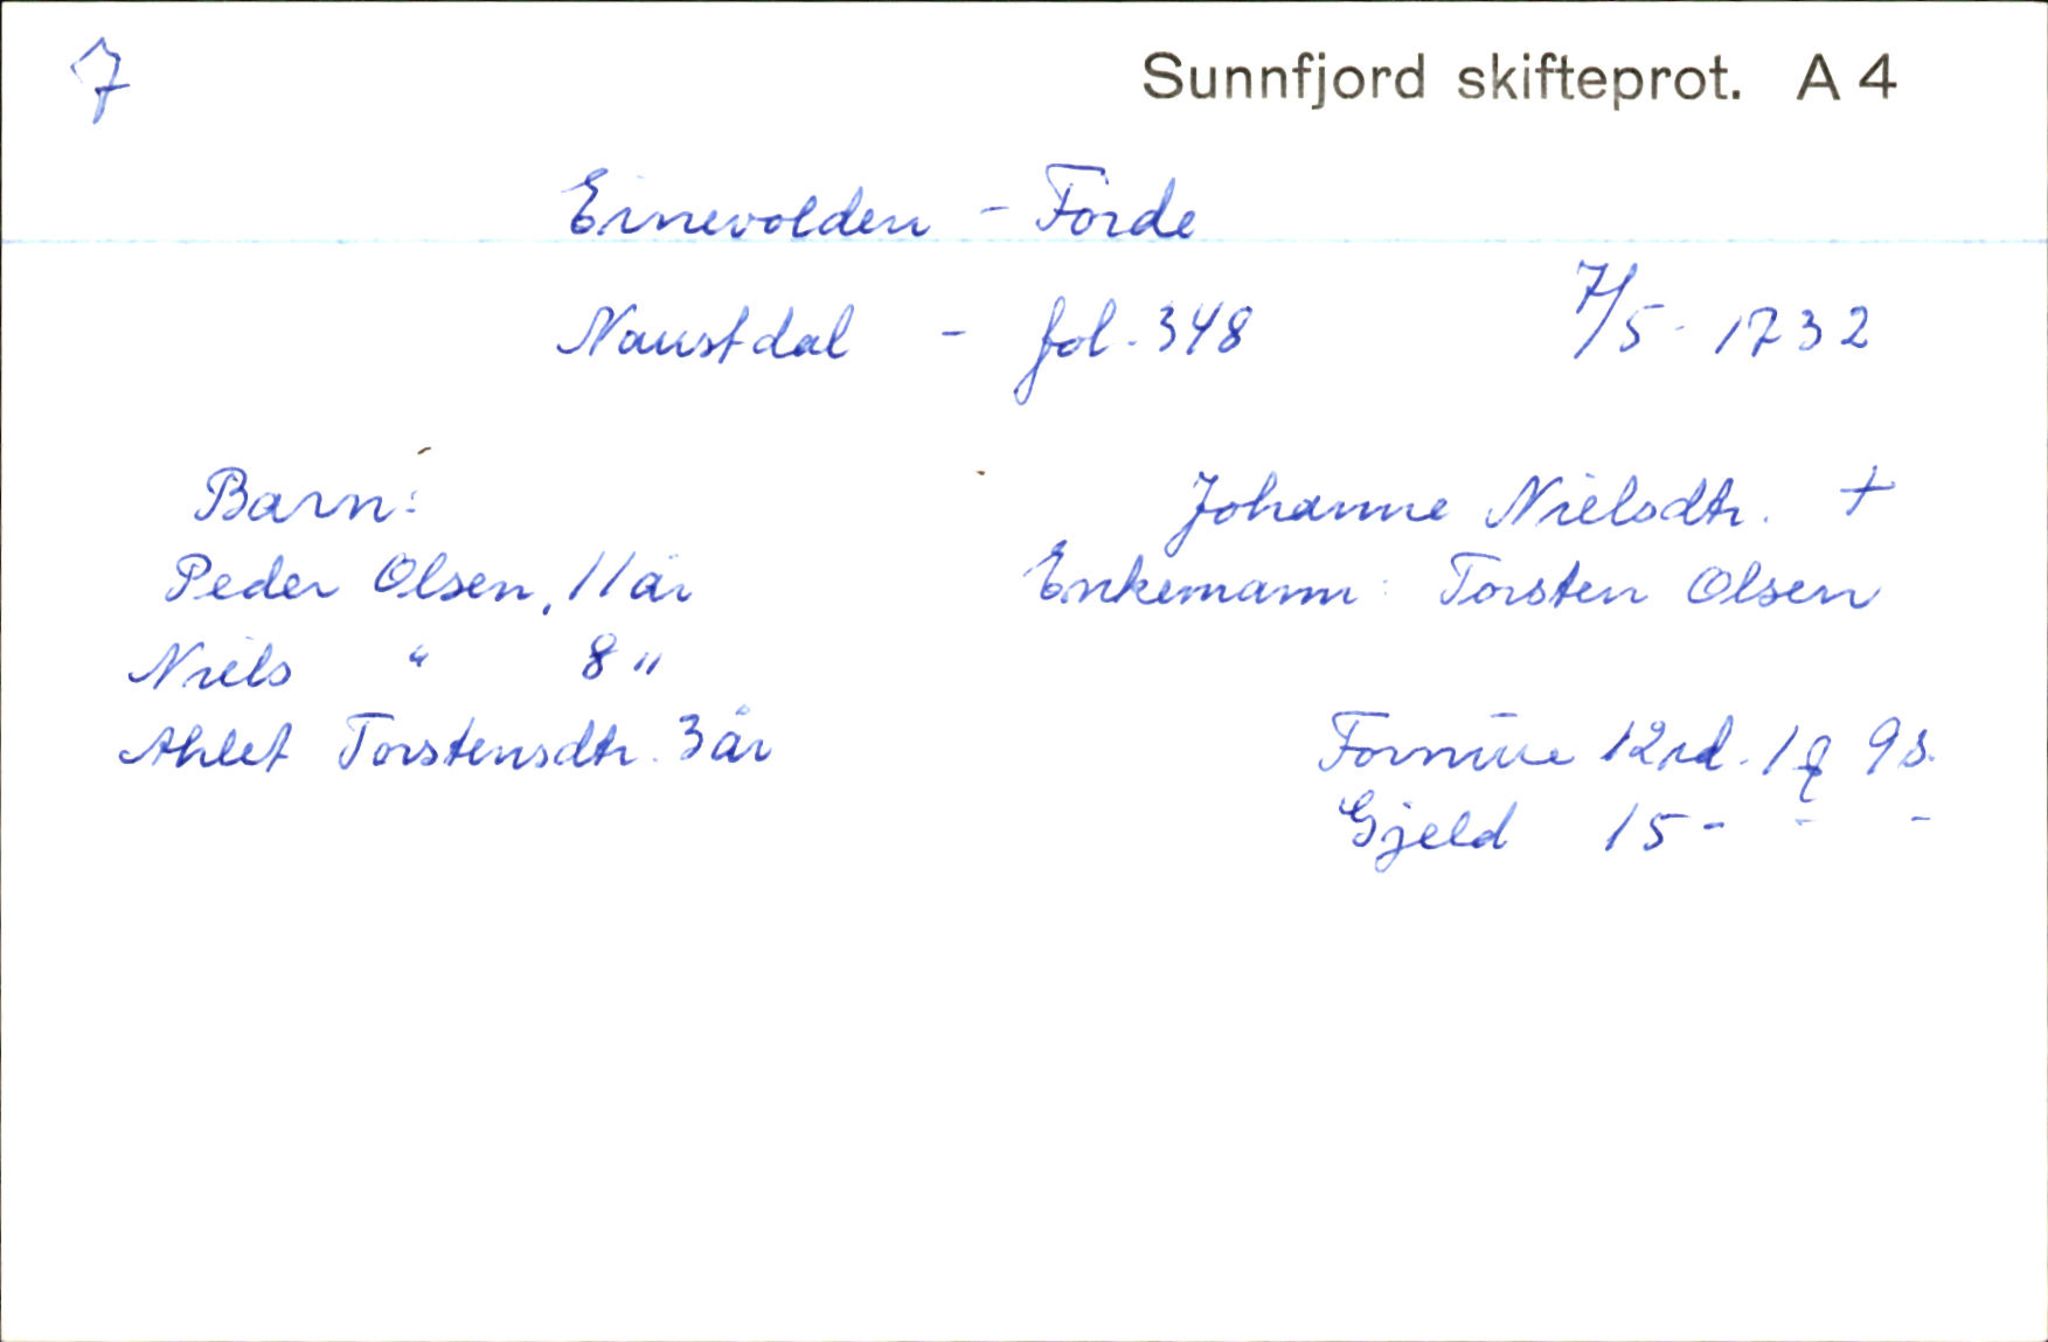 7
Sunnfjord skifteprot. A 4
Einevolden - Förde
Naustdal - fol. 348 7/5-1732
Barn: Johanne Nielsdtr. +
Peder Olsen, 11 år Enkemann: Torsten Olsen
Niels " 8 "
Ahlet Torstensdtr. 3 år Formue 12 rd. 1 9 s.
Gjeld 15 - - -